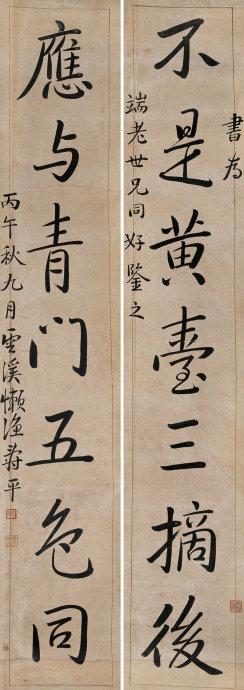 書为
不是黄臺三摘後
端老世兄同好鑒之
應与青门五色同
丙午秋九月雲溪懶漁壽平